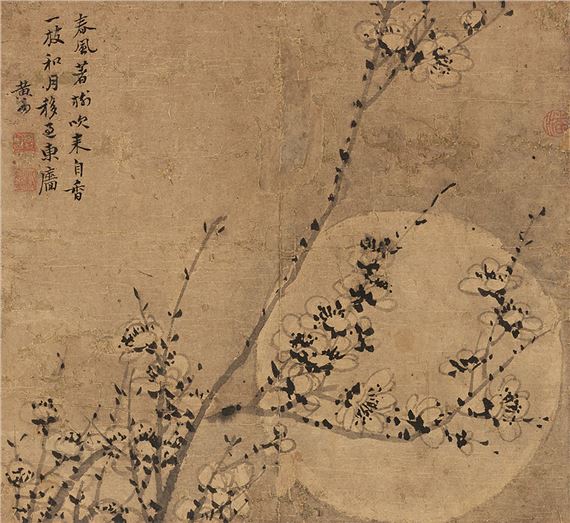 春風著樹吹来自香
一枝和月移過東廧
黄易